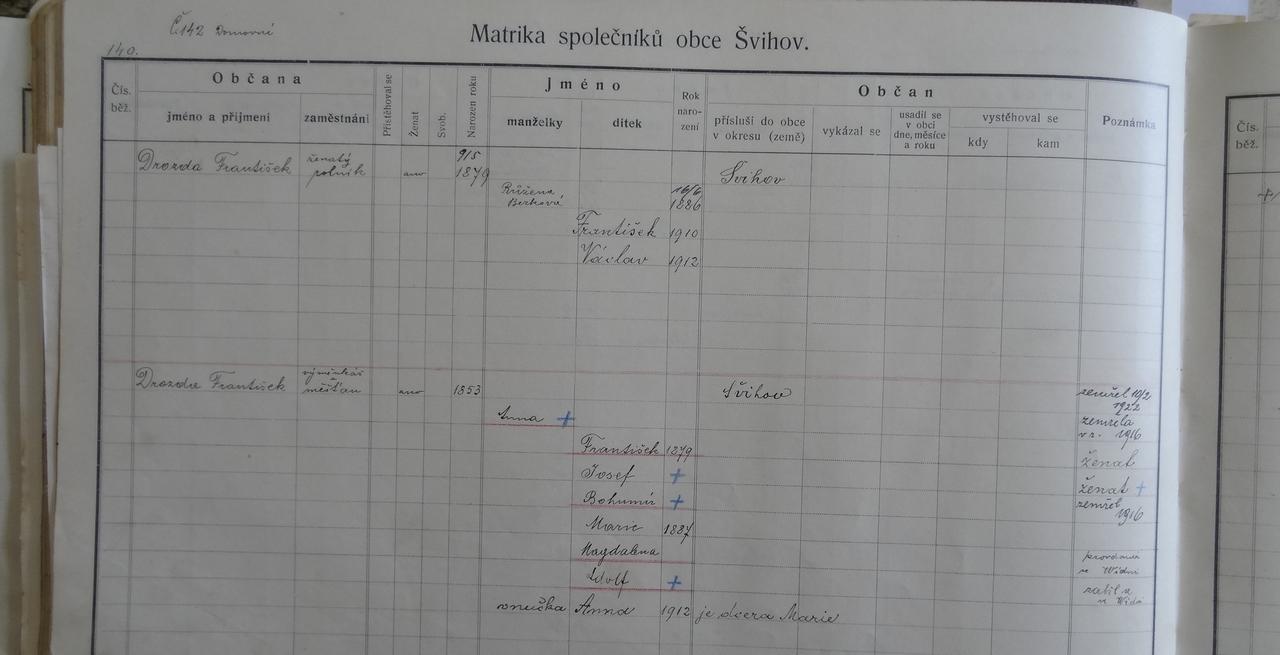 Č142 Domovní
140.
Matrika společníků obce Švihov.
Čís. běž.
Občana
jméno a příjmení
zaměstnání
Přistěhoval se
Ženat
Svob.
Narozen roku
Jméno
manželky
dítek
Rok naro- zení
Občan
přísluší do obce v okresu (země)
vykázal se
usadil se v obci dne, měsíce a roku
vystěhoval se
kdy
kam
Poznámka
Čís. běž.
Drozda František ženatý rolník ano 9/5 1879 Švihov
Růžena Berková 16/6 1886
František 1910
Václav 1912
Drozda František výměnkář měšťan ano 1853 Švihov zemřel 10/2 1922
Anna + zemřela v r. 1916
František 1879 ženat
Josef + ženat +
Bohumír + zemřel 1916
Marie 1887
Magdalena provdaná ve Vídni
Adolf +
vnučka Anna 1912 je dcera Marie